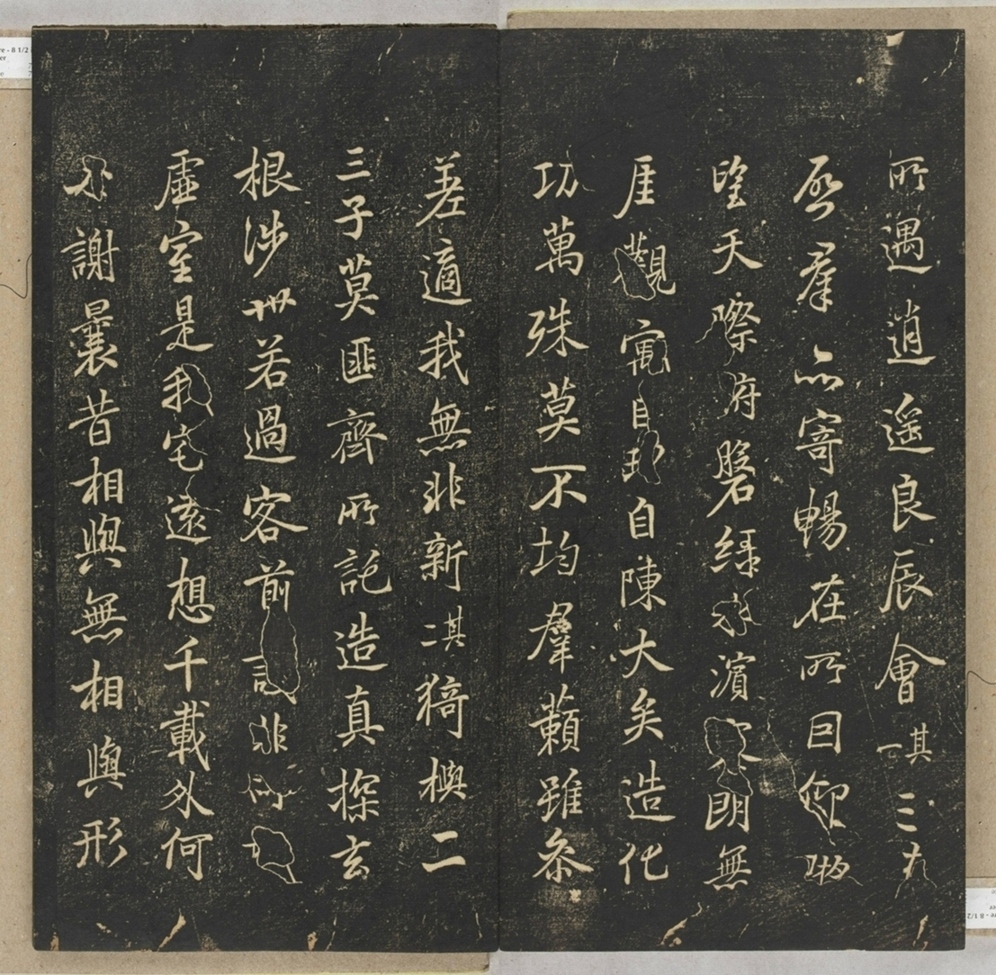 所遇逍遥良辰會其一三春
启羣品寄暢在所囙仰眺
望天際俯磐緑水濱寥朗無
厓觀寓目理自陳大矣造化
功萬殊莫不均羣籟雖叅
差適我無非新其二猗與二
三子莫匪齊所託造真探玄
根涉世若過客前識非所期
虛室是我宅遠想千載外何
必謝曩昔相與無相與形